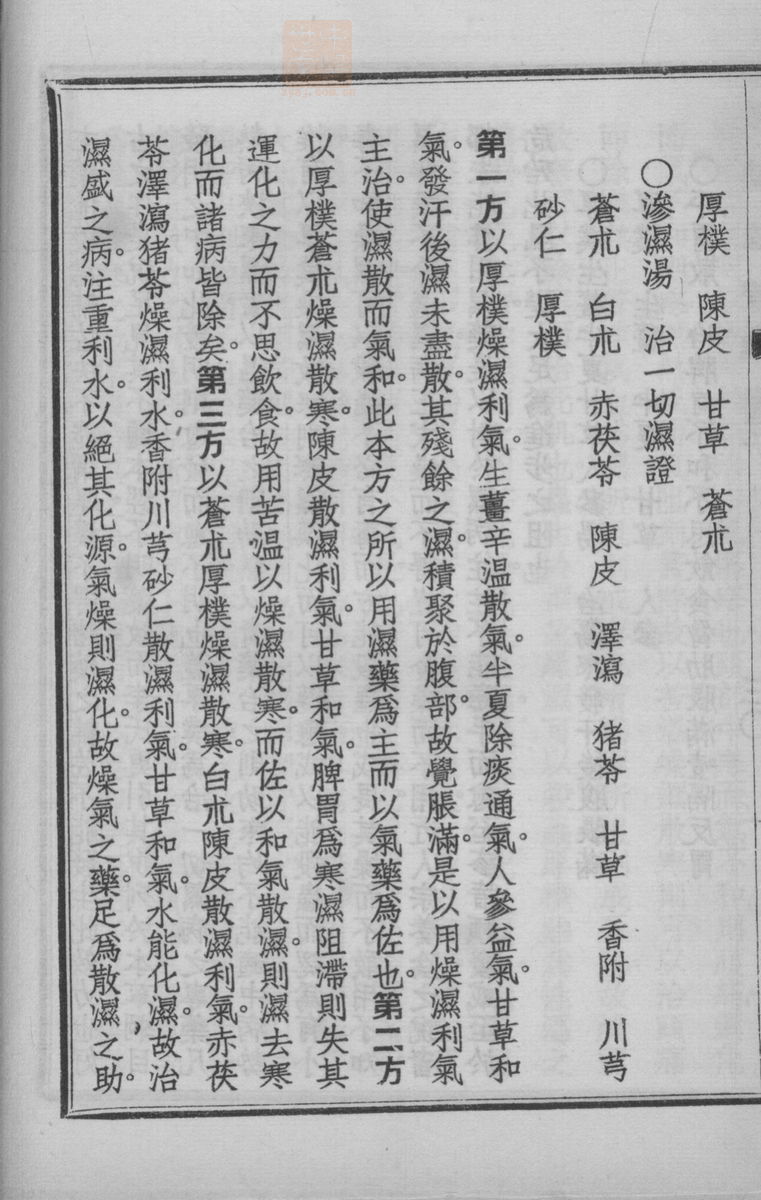 厚樸　陳皮　甘草　蒼朮
〇滲濕湯　治一切濕證
蒼朮　白朮　赤茯苓　陳皮　澤瀉　猪苓　甘草　香附　川芎
砂仁　厚樸
第一方以厚樸燥濕利氣。生薑辛温散氣。半夏除痰通氣。人參益氣。甘草和
氣。發汗後濕未盡。散其殘餘之濕。積聚於腹部。故覺脹滿。是以用燥濕利氣
主治。使濕散而氣和。此本方之所以用濕藥爲主而以氣藥爲佐也。第二方
以厚樸蒼朮燥濕散寒。陳皮散濕利氣。甘草和氣。脾胃爲寒濕阻滯則失其
運化之力而不思飲食。故用苦温以燥濕散寒。而佐以和氣散濕。則濕去寒
化而諸病皆除矣。第三方以蒼朮厚樸燥濕散寒。白朮陳皮散濕利氣。赤茯
苓澤瀉猪苓燥濕利水。香附川芎砂仁散濕利氣。甘草和氣。水能化濕。故治
濕盛之病。注重利水。以絕其化源。氣燥則濕化。故燥氣之藥。足爲散濕之助。